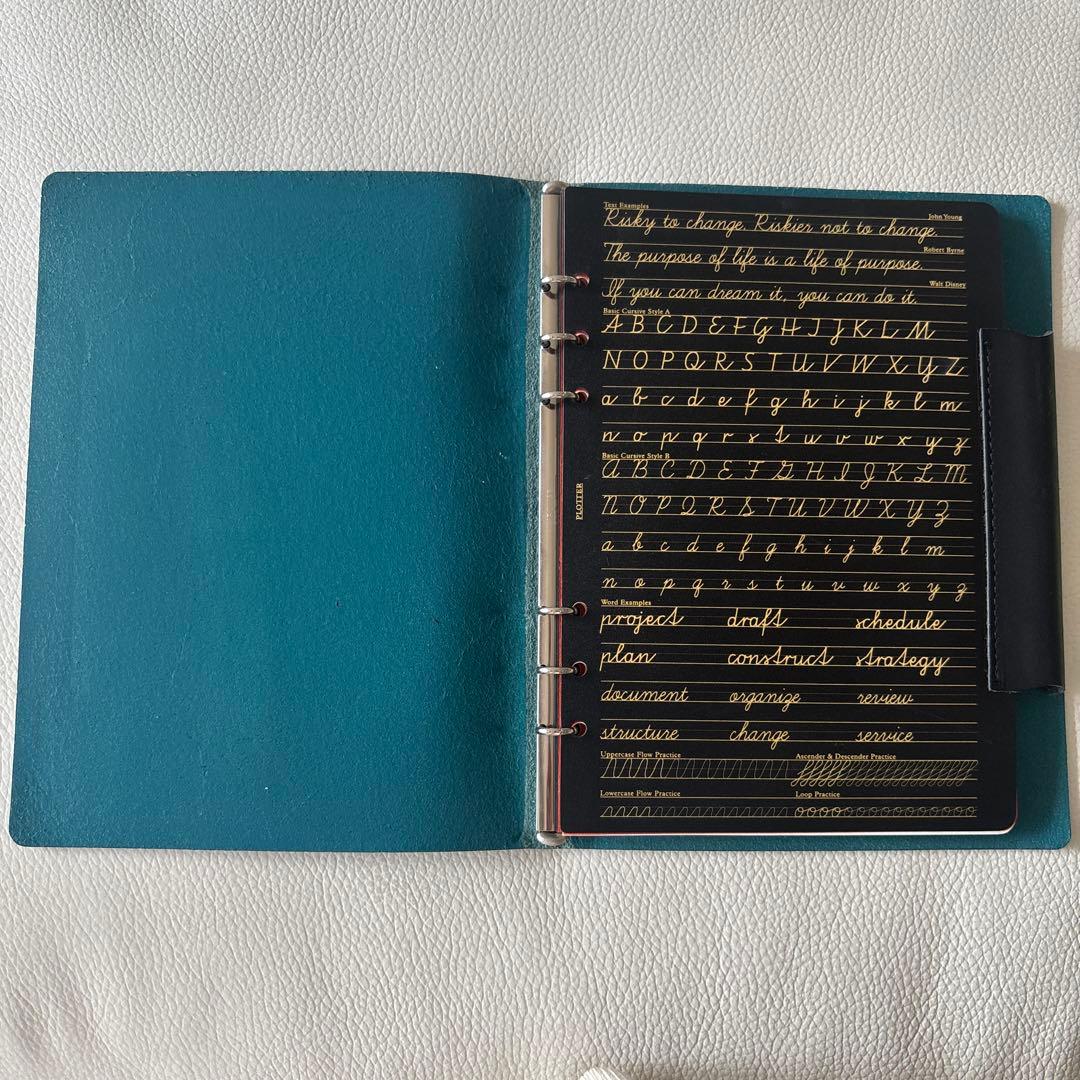 Text Examples
John Young
Risky to change, Riskier not to change.
Robert Byrne
The purpose of life is a life of purpose.
Walt Disney
If you can dream it, you can do it.
Basic Cursive Style A
A B C D E F G H I J K L M
N O P Q R S T U V W X Y Z
a b c d e f g h i j k l m
n o p q r s t u v w x y z
Basic Cursive Style B
A B C D E F G H I J K L M
N O P Q R S T U V W X Y Z
a b c d e f g h i j k l m
n o p q r s t u v w x y z
PLOTTER
Word Examples
project draft schedule
plan construct strategy
document organize review
structure change service
Uppercase Flow Practice Ascender & Descender Practice
Lowercase Flow Practice Loop Practice